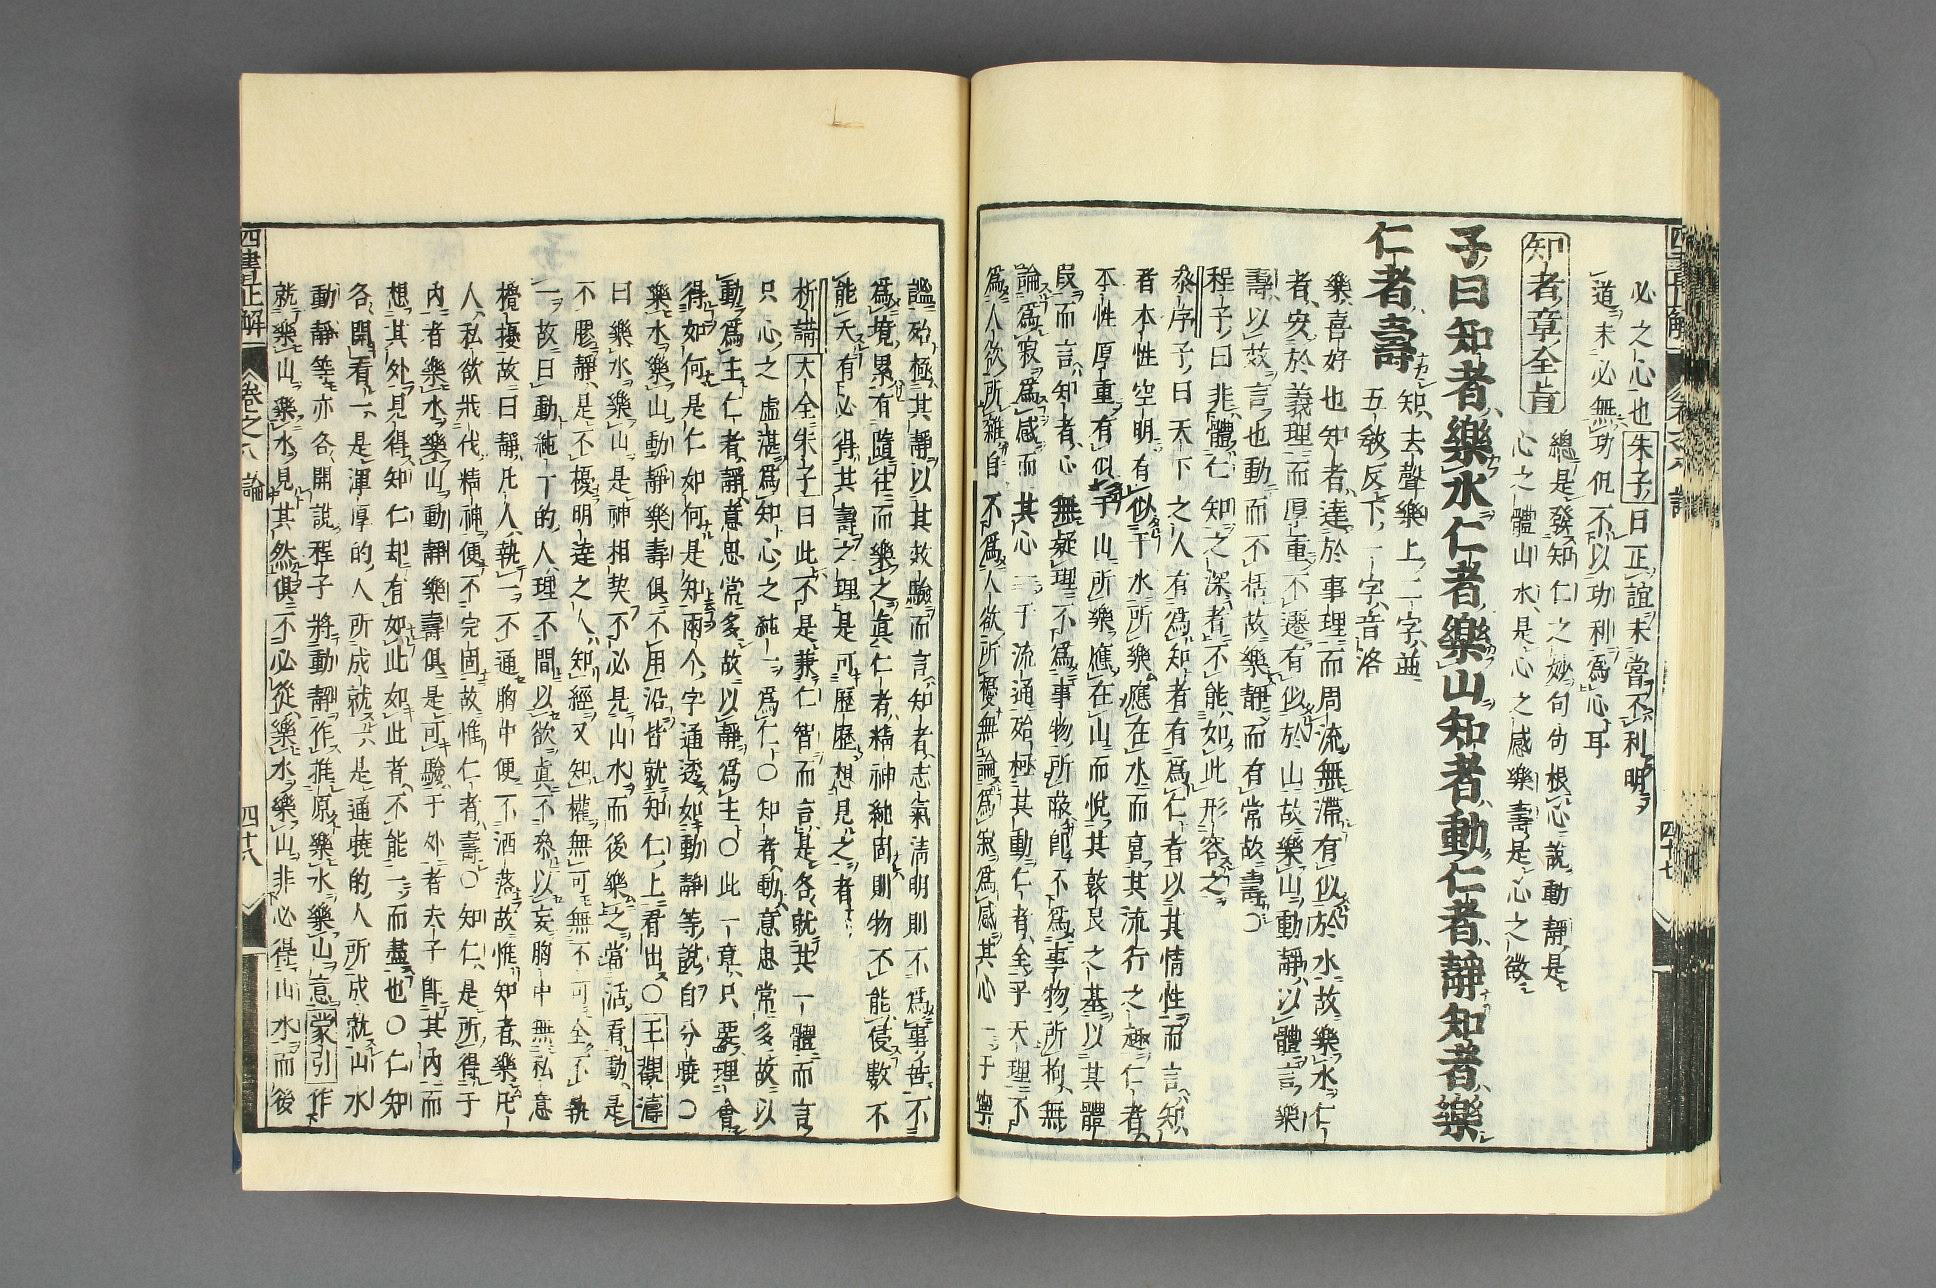 必之心也朱子曰正誼未嘗不利明
道未必無功但不以功利爲心耳
知者章全旨
總是發知仁之妙句句根心說動靜是
心之體山水是心之感樂壽是心之徵
子曰知者樂水仁者樂山知者動仁者靜知者樂
仁者壽
知去聲樂上二字並
五敎反下一字音洛
樂喜好也知者達於事理而周流無滯有似於水故樂水仁
者安於義理而厚重不遷有似於山故樂山動靜以體言樂
壽以效言也動而不括故樂靜而有常故壽〇
程子曰非體仁知之深者不能如此形容之
參序子曰天下之人有爲知者有爲仁者以其情性而言知
者本性空明有似于水所樂應在水而喜其流行之趣仁者
本性厚重有似于山所樂應在山而悅其敦艮之基以其體
段而言知者心無疑理不爲事物所蔽卽不爲事物所拘無
論爲寂爲感而其心一于流通殆極其動仁者全乎天理不
爲人欲所雜自不爲人欲所擾無論爲寂爲感其心一于寧
謐殆極其靜以其效驗而言知者志氣淸明則不爲事苦不
爲境累有隨往而樂之眞仁者精神純固則物不能侵數不
能夭有必得其壽之理是可歷歷想見之者
析講大全朱子曰此不是兼仁智而言是各就其一體而言
只心之虛湛爲知心之純一爲仁〇知者動意思常多故以
動爲主仁者靜意思常多故以靜爲主〇此一章只要理會
得如何是仁如何是知兩个字通透如動靜等說自分曉〇
樂水樂山動靜樂壽俱不用沿皆就知仁上看出〇王觀濤
曰樂水樂山是神相契不必是山水而後樂之當活看動是
不膠靜是不擾明達之人知經又知權無可無不可全不執
一故曰動純一的人理不間以欲眞不參以妄胸中無私意
攪擾故曰靜凡人執一不通胸中便不洒落故惟知者樂凡
人私欲戕伐精神便不完固故惟仁者壽〇知仁是所得于
內者樂水樂山動靜樂壽俱是可驗于外者夫子卽其內而
想其外見得知仁却有如此如此者不能一而盡也〇仁知
各開看一是渾厚的人所成就一是通曉的人所成就山水
動靜等亦各開說程子將動靜作推原樂水樂山意蒙引作
就樂山樂水見其然俱不必從樂水樂山非必得山水而後
四書正解
卷之八
論
四十七
四十八